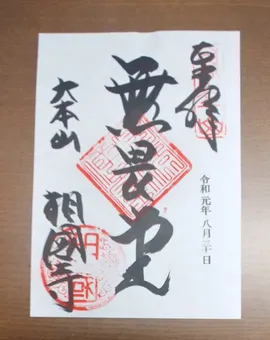 奉拝
令和元年八月二十日
無畏堂
大本山
相國寺